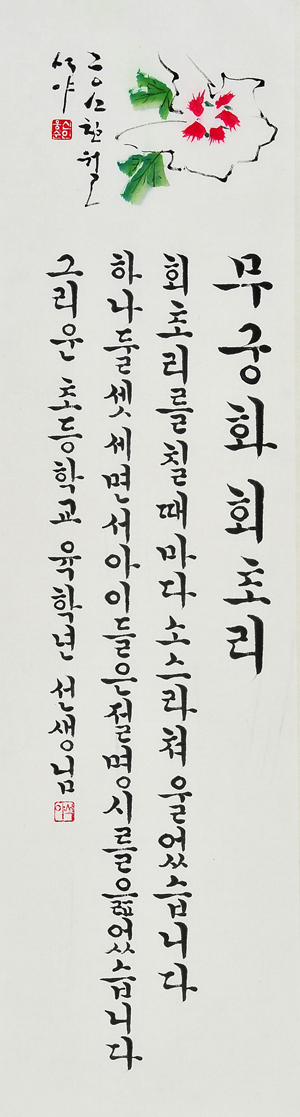 무궁화 회초리
회초리를 칠 때마다 소스라쳐 울었습니다
하나 둘 셋 세면서 아이들은 절명시를 읊었습니다
그리운 초등학교 육학년 선생님
석야